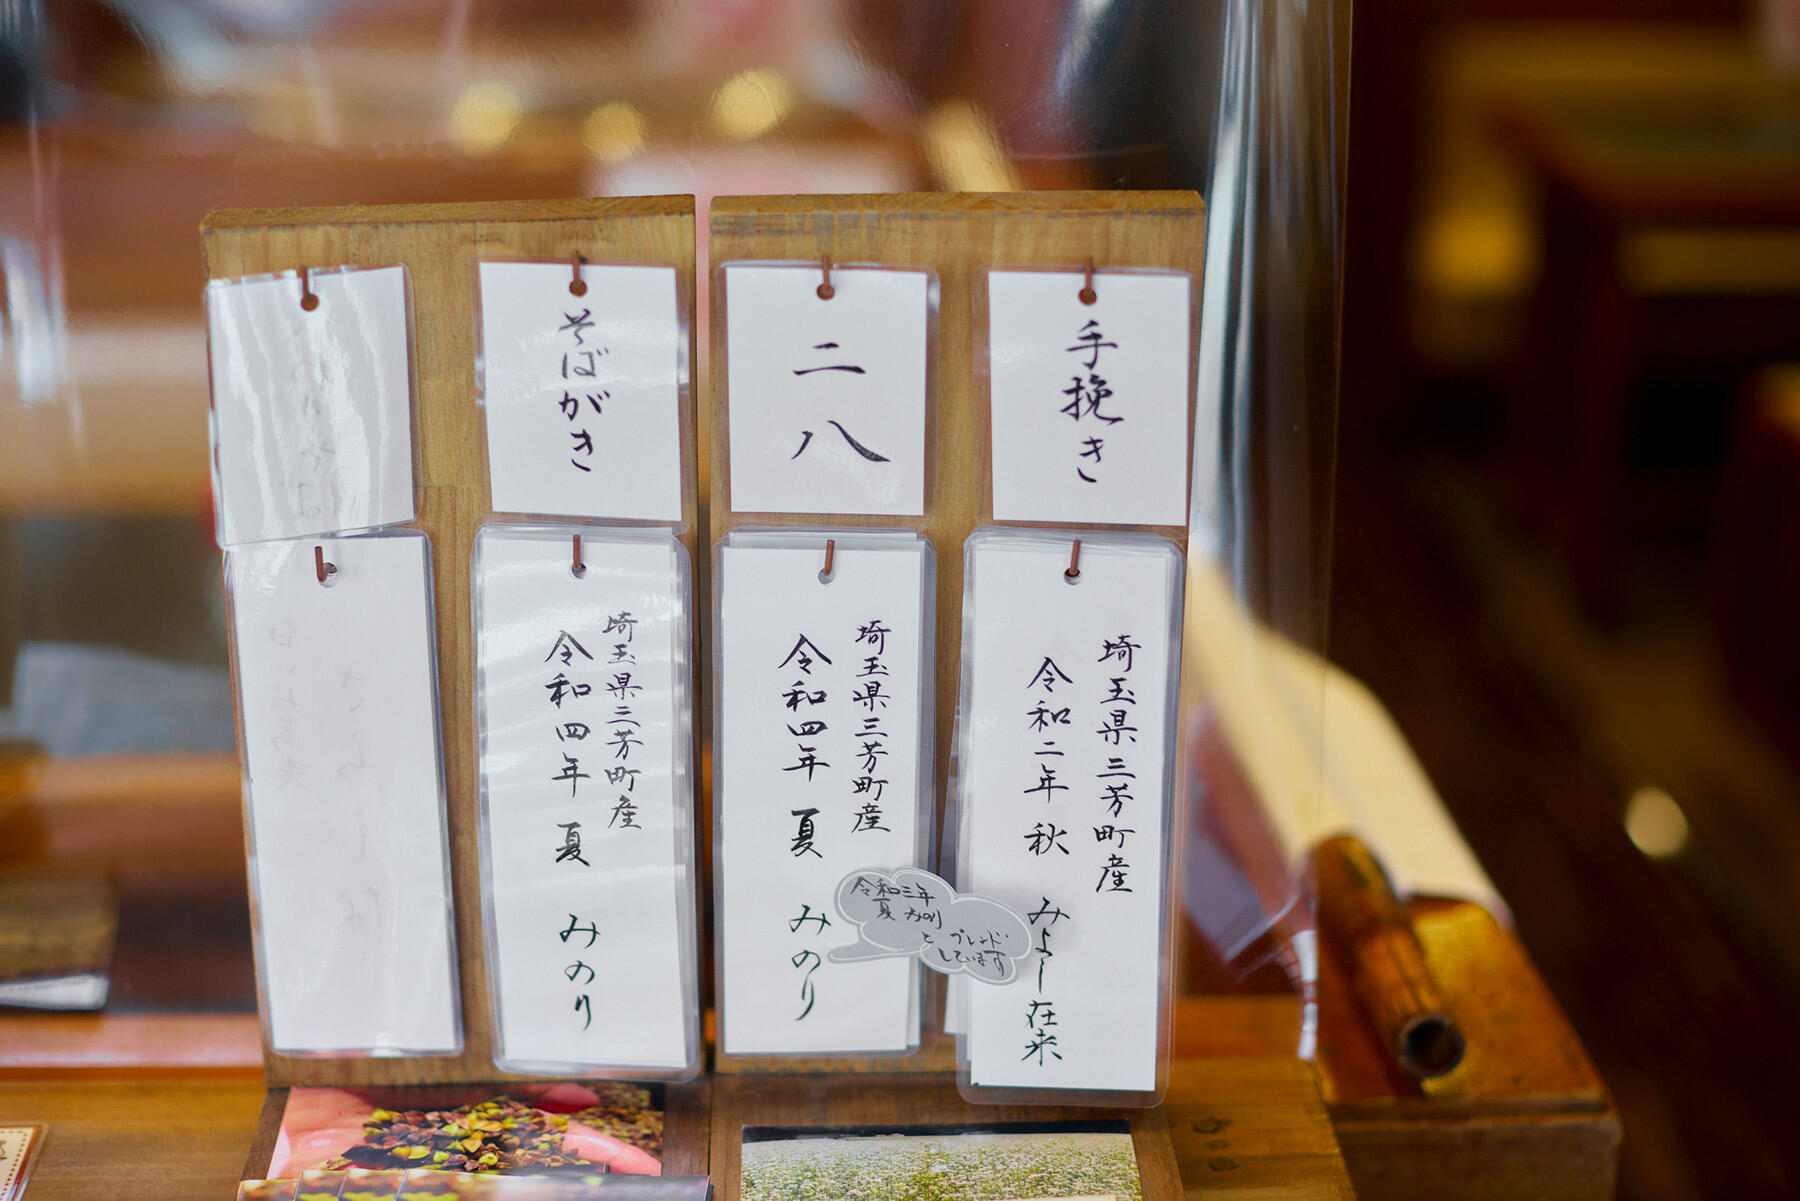 手挽き
埼玉県三芳町産
令和二年 秋 みよし在来
二八
埼玉県三芳町産
令和四年 夏 みのり
令和三年
夏 みのり
と ブレンド
しています
そばがき
埼玉県三芳町産
令和四年 夏 みのり